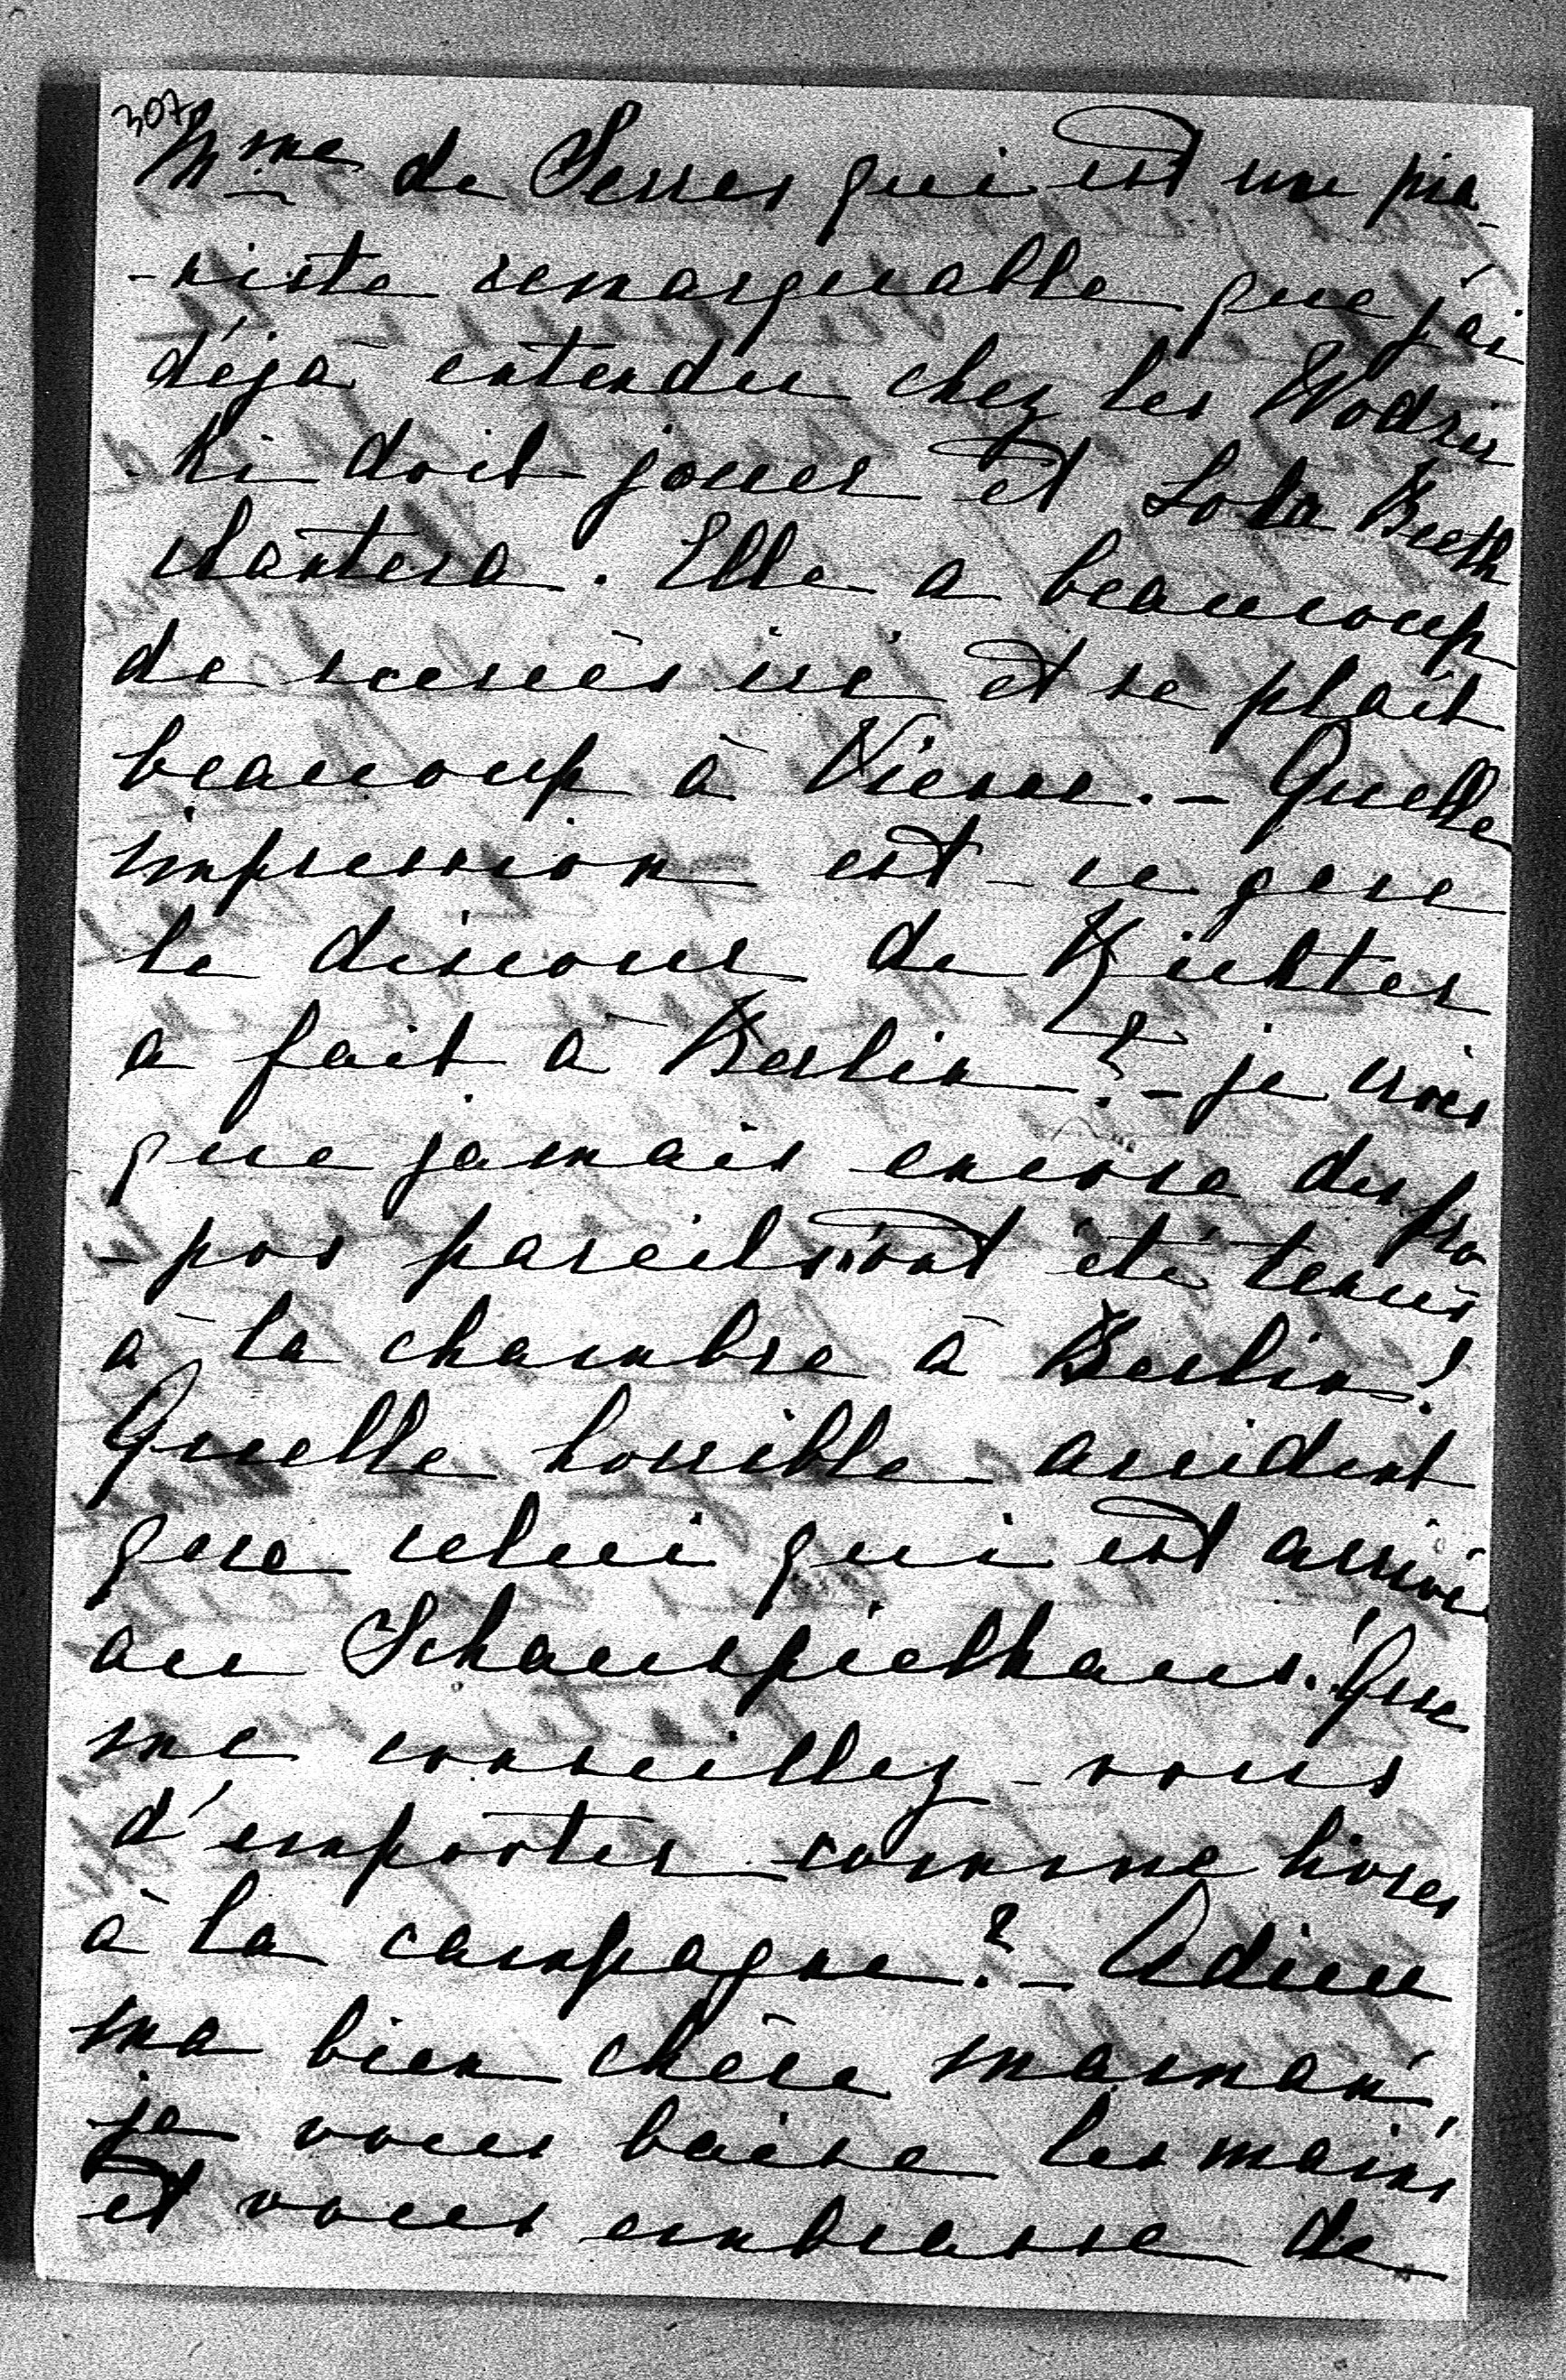 307
Mme de Serres qui est une pia-
-niste remarquable que j'ai
déjà entendue chez les Wodzis
-ki doit jouer et Lola Beeth
chantera. Elle a beaucoup
de succès ici et se plaît
beaucoup à Vienne. - Quelle
impression est-ce que
le discours de Richter
a fait à Berlin? - je crois
que jamais encore des pro
-pos pareils n'ont été tenus
à la chambre à Berlin!
Quelle horrible accident
que celui qui est arrivé
au Schauspielhaus! Que
me conseillez-vous
d'emporter comme livres
à la campagne? - Adieu
ma bien chère maman,
je vous baise les mains
et vous embrasse de